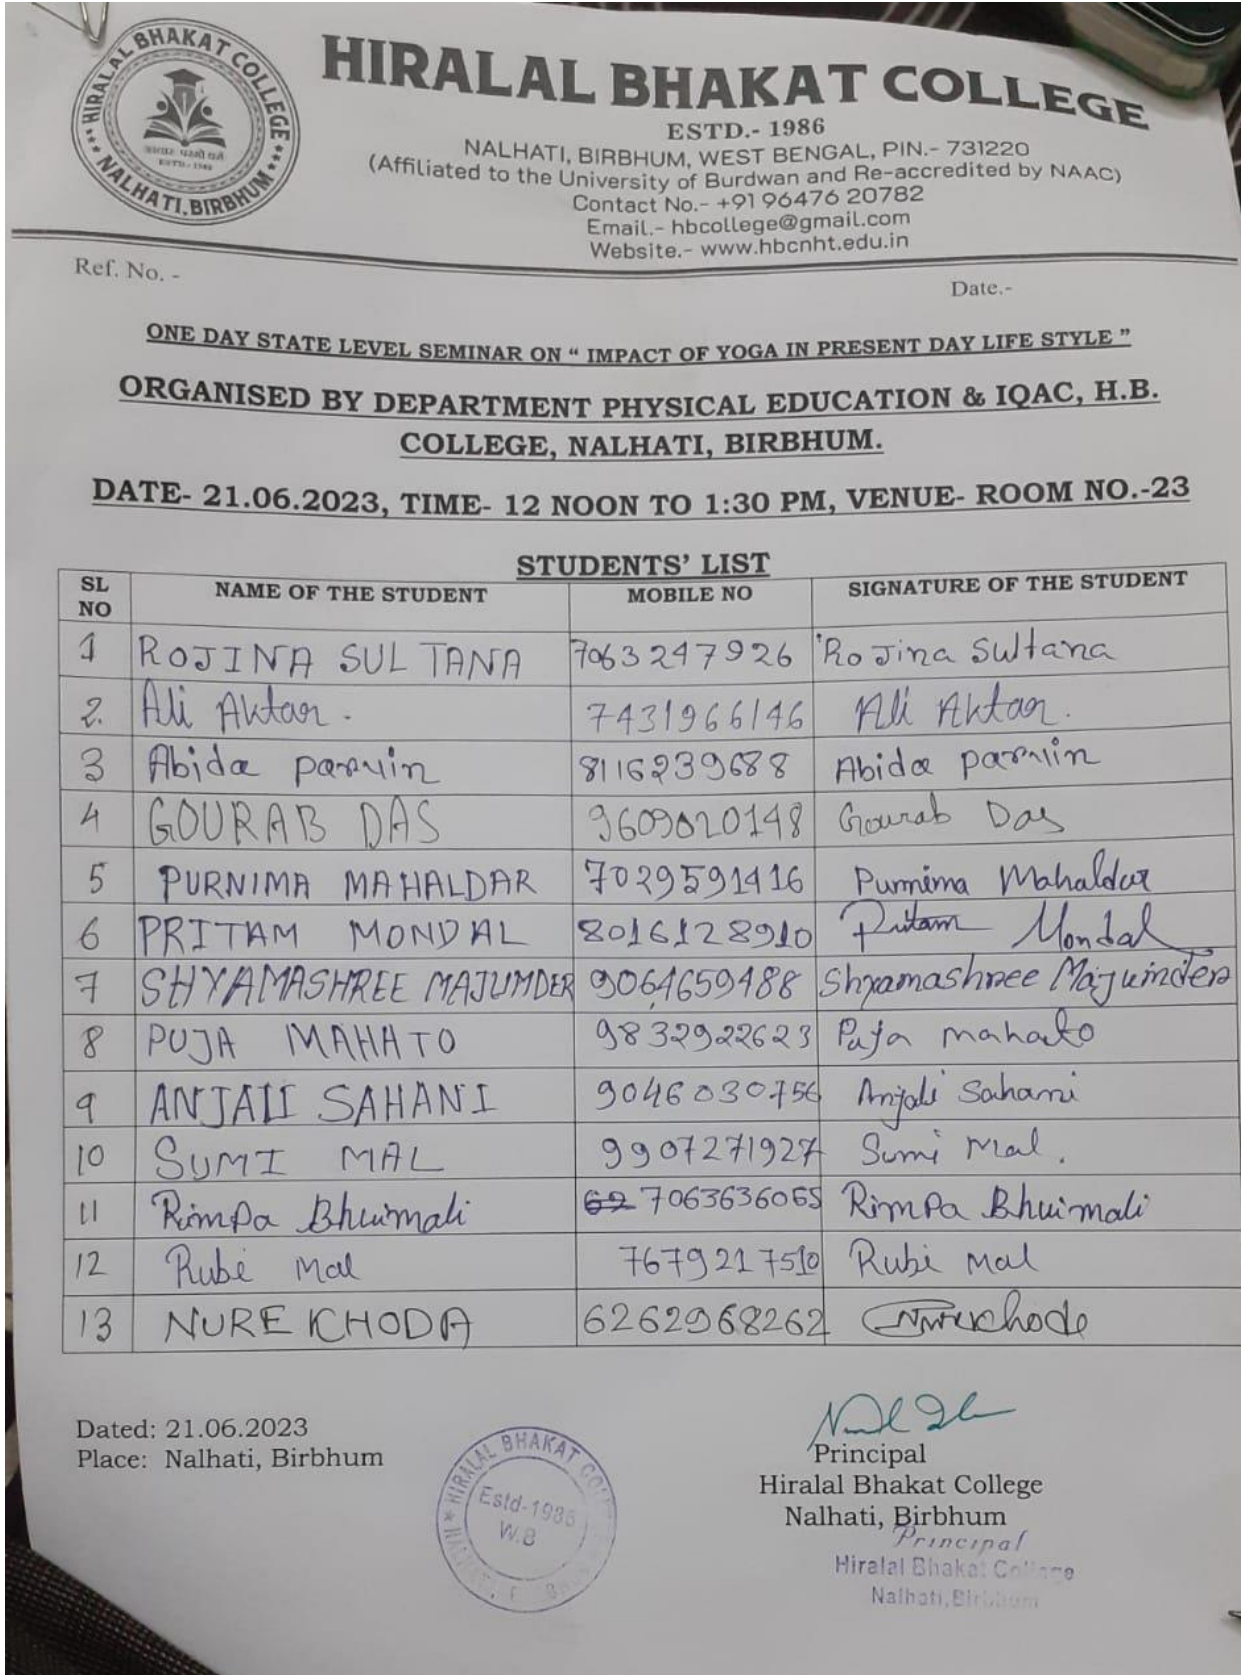 HIRALAL BHAKAT COLLEGE
NALHATI, BIRBHUM
ESTD.- 1986
HIRALAL BHAKAT COLLEGE
ESTD.- 1986
NALHATI, BIRBHUM, WEST BENGAL, PIN.- 731220
(Affiliated to the University of Burdwan and Re-accredited by NAAC)
Contact No.- +91 96476 20782
Email.- hbcollege@gmail.com
Website.- www.hbcnht.edu.in
Ref. No. -
Date.-
ONE DAY STATE LEVEL SEMINAR ON “ IMPACT OF YOGA IN PRESENT DAY LIFE STYLE ”
ORGANISED BY DEPARTMENT PHYSICAL EDUCATION & IQAC, H.B.
COLLEGE, NALHATI, BIRBHUM.
DATE- 21.06.2023, TIME- 12 NOON TO 1:30 PM, VENUE- ROOM NO.-23
STUDENTS’ LIST
SL NO NAME OF THE STUDENT MOBILE NO SIGNATURE OF THE STUDENT
1 ROJINA SULTANA 7063247926 Rojina Sultana
2. Ali Aktar. 7431966146 Ali Aktar.
3 Abida parvin 8116239688 Abida parvin
4 GOURAB DAS 9609020148 Gourab Das
5 PURNIMA MAHALDAR 7029591416 Purnima Mahaldar
6 PRITAM MONDAL 8016128910 Pritam Mondal
7 SHYAMASHREE MAJUMDER 9064659488 Shyamashree Majumder
8 PUJA MAHATO 9832922623 Puja mahato
9 ANJALI SAHANI 9046030756 Anjali Sahani
10 SUMI MAL 9907271927 Sumi Mal.
11 Rimpa Bhuimali 7063636065 Rimpa Bhuimali
12 Rubi Mal 7679217510 Rubi Mal
13 NURE KHODA 6262968262
Dated: 21.06.2023
Place: Nalhati, Birbhum
Principal
Hiralal Bhakat College
Nalhati, Birbhum
Principal
Hiralal Bhakat College
Nalhati, Birbhum
HIRALAL BHAKAT
Estd-1986
W.B